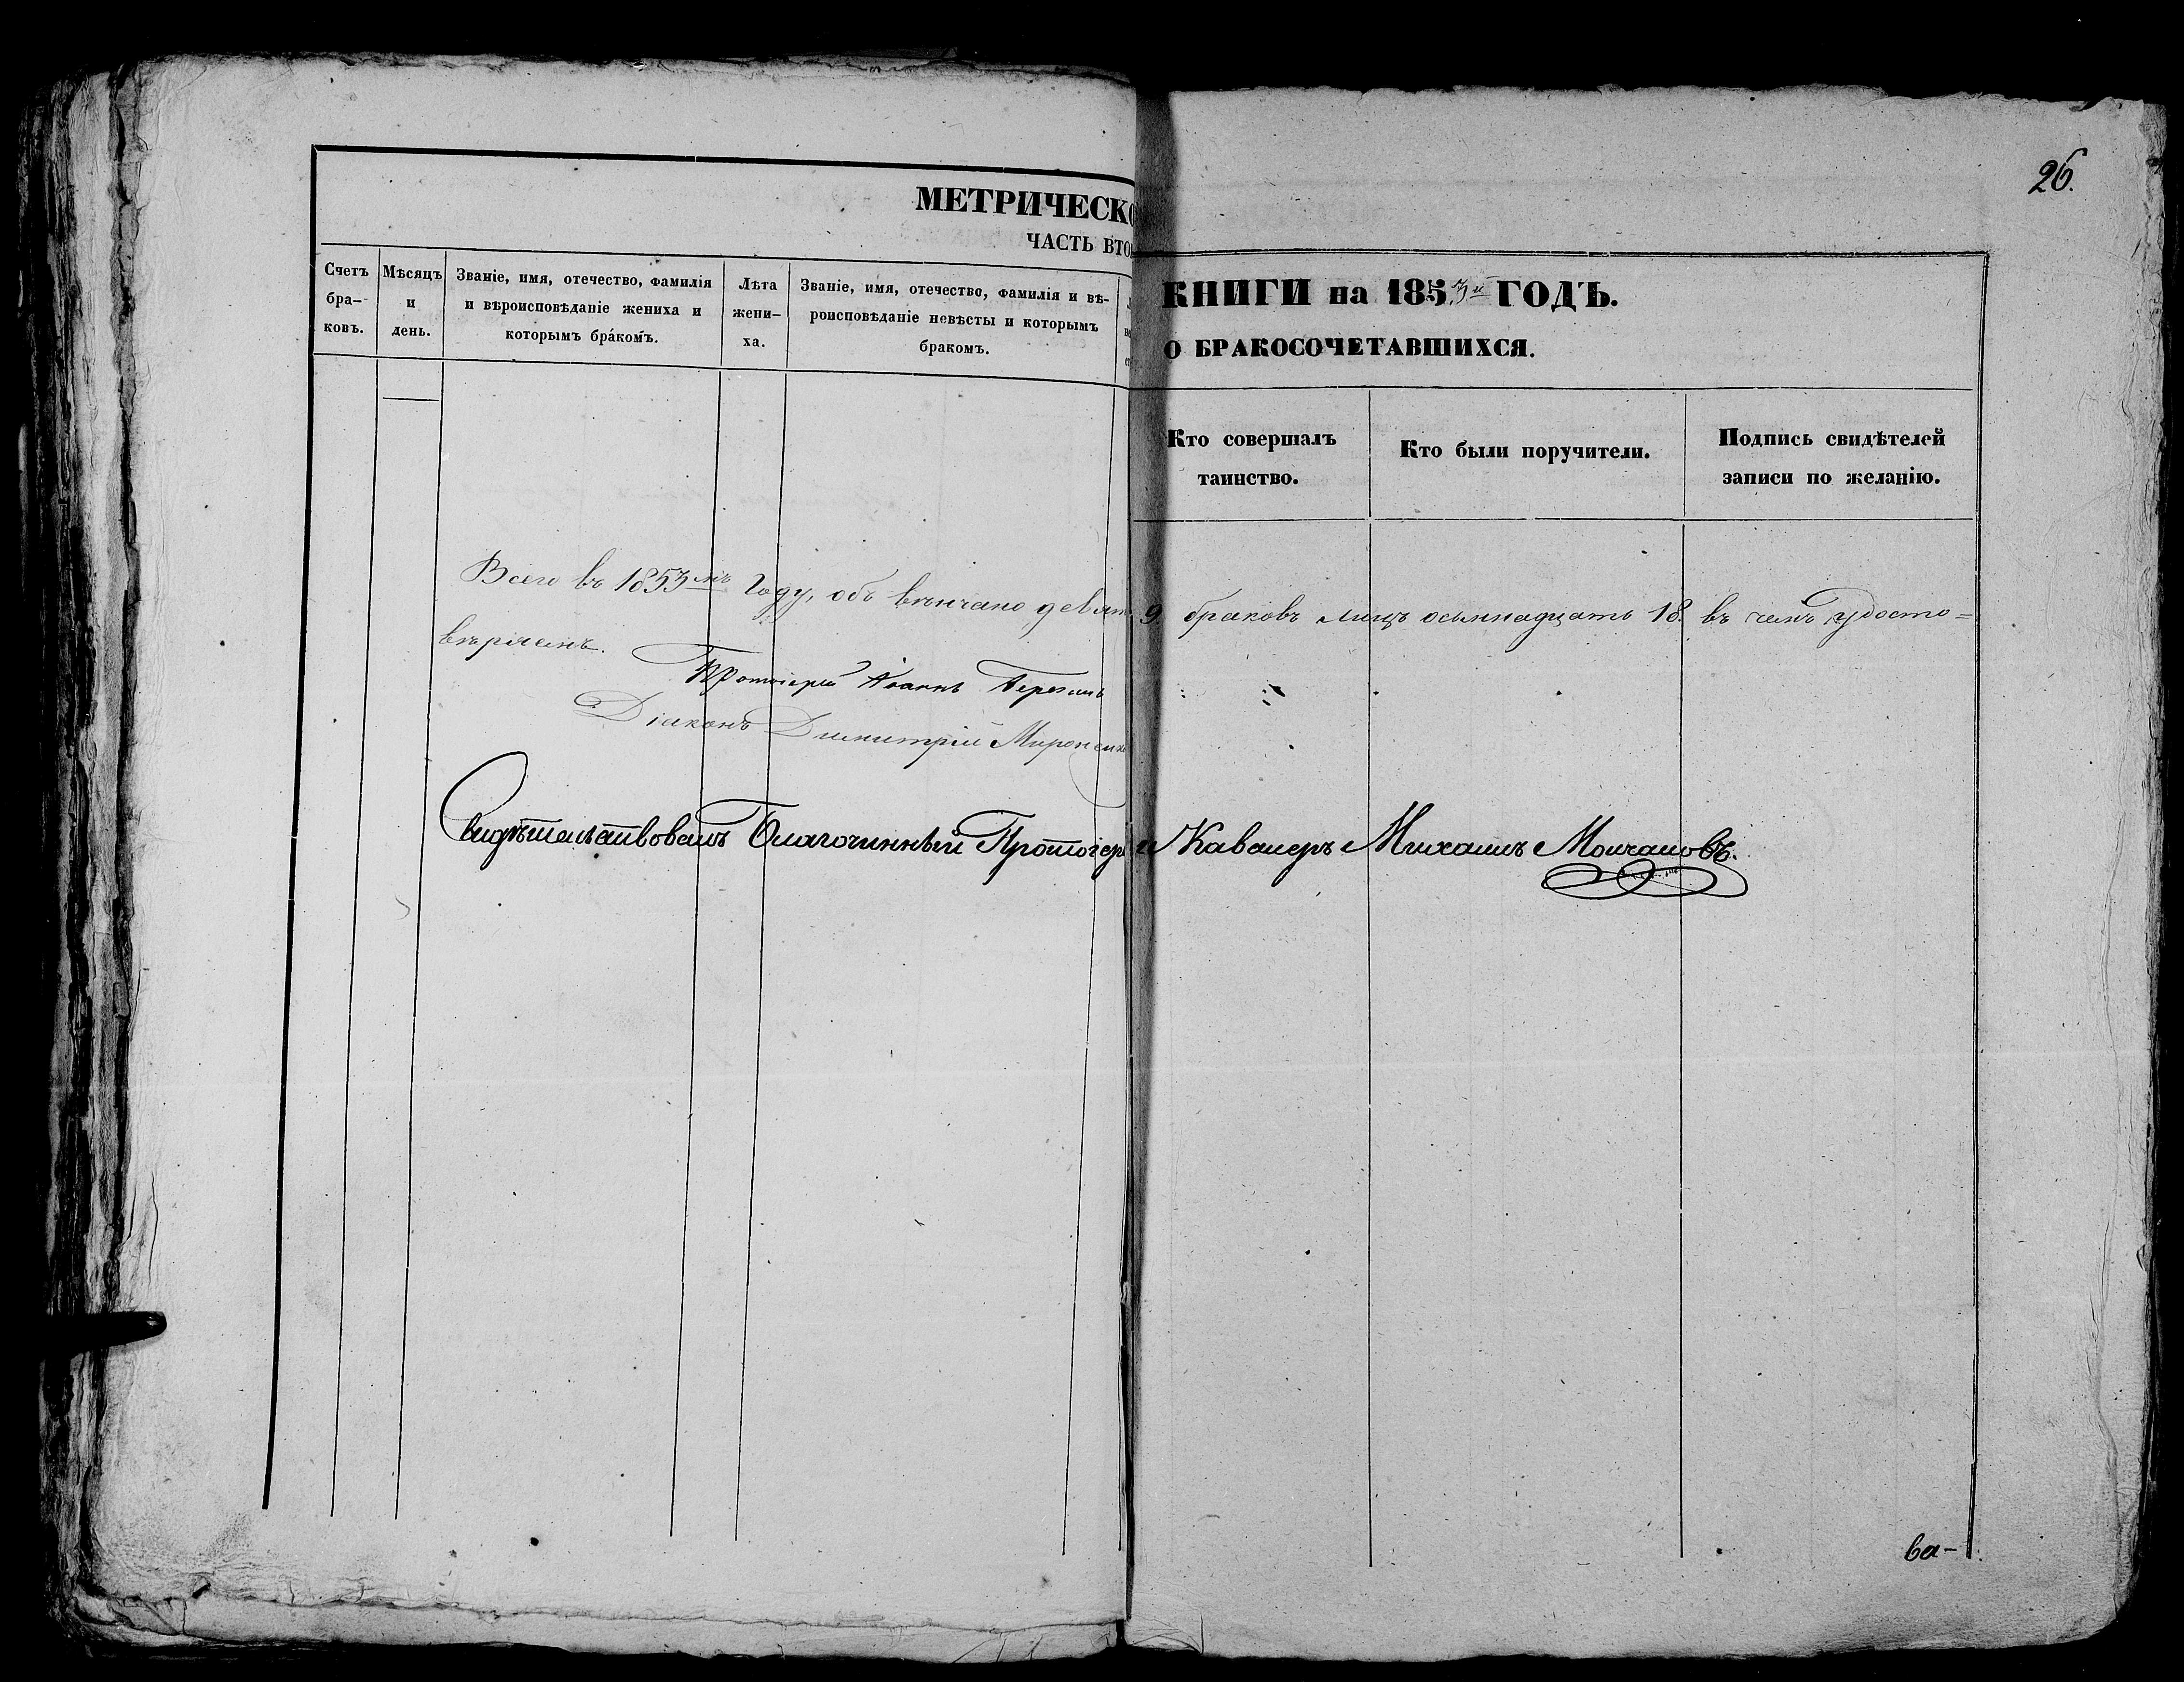 26.
МЕТРИЧЕСКО КНИГИ на 1853й ГОДЪ.
ЧАСТЬ ВТО О БРАКОСОЧЕТАВШИХСЯ.
Счетъ бра- ковъ.
Мѣсяцъ и день.
Званіе, имя, отечество, фамилія и вѣроисповѣданіе жениха и которымъ бракомъ.
Лѣта жени- ха.
Званіе, имя, отечество, фамилія и вѣ- роисповѣданіе невѣсты и которымъ бракомъ.
Кто совершалъ таинство.
Кто были поручители.
Подпись свидѣтелей записи по желанію.
Всего въ 1853мъ году, объ вѣнчано девят 9. браковъ лицъ осьмнадцать 18. въ чемъ удосто=
вѣряемъ.
Протоіерей Іоаннъ
Діаконъ Димитрій Мироненко
Свидѣтельствовалъ Благочинный Протоіере и Кавалеръ Михаилъ Молчановъ.
ва-